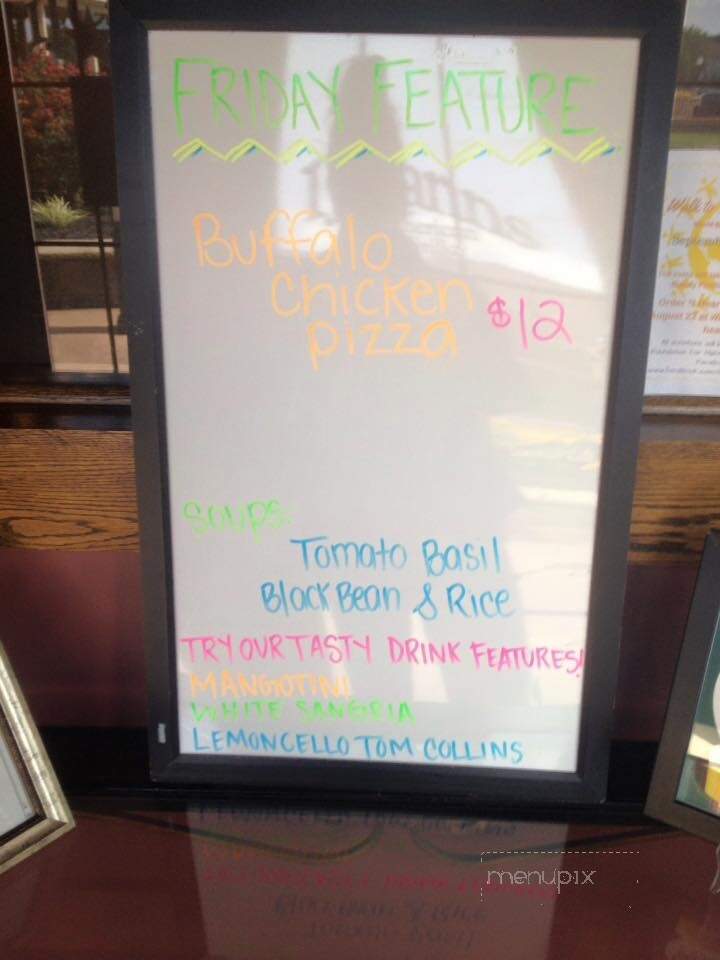 FRIDAY FEATURE
Buffalo
Chicken
pizza $12
Soups:
Tomato Basil
Black Bean & Rice
TRY OUR TASTY DRINK FEATURES!
MANGOTINI
WHITE SANGRIA
LEMONCELLO TOM COLLINS
menupix